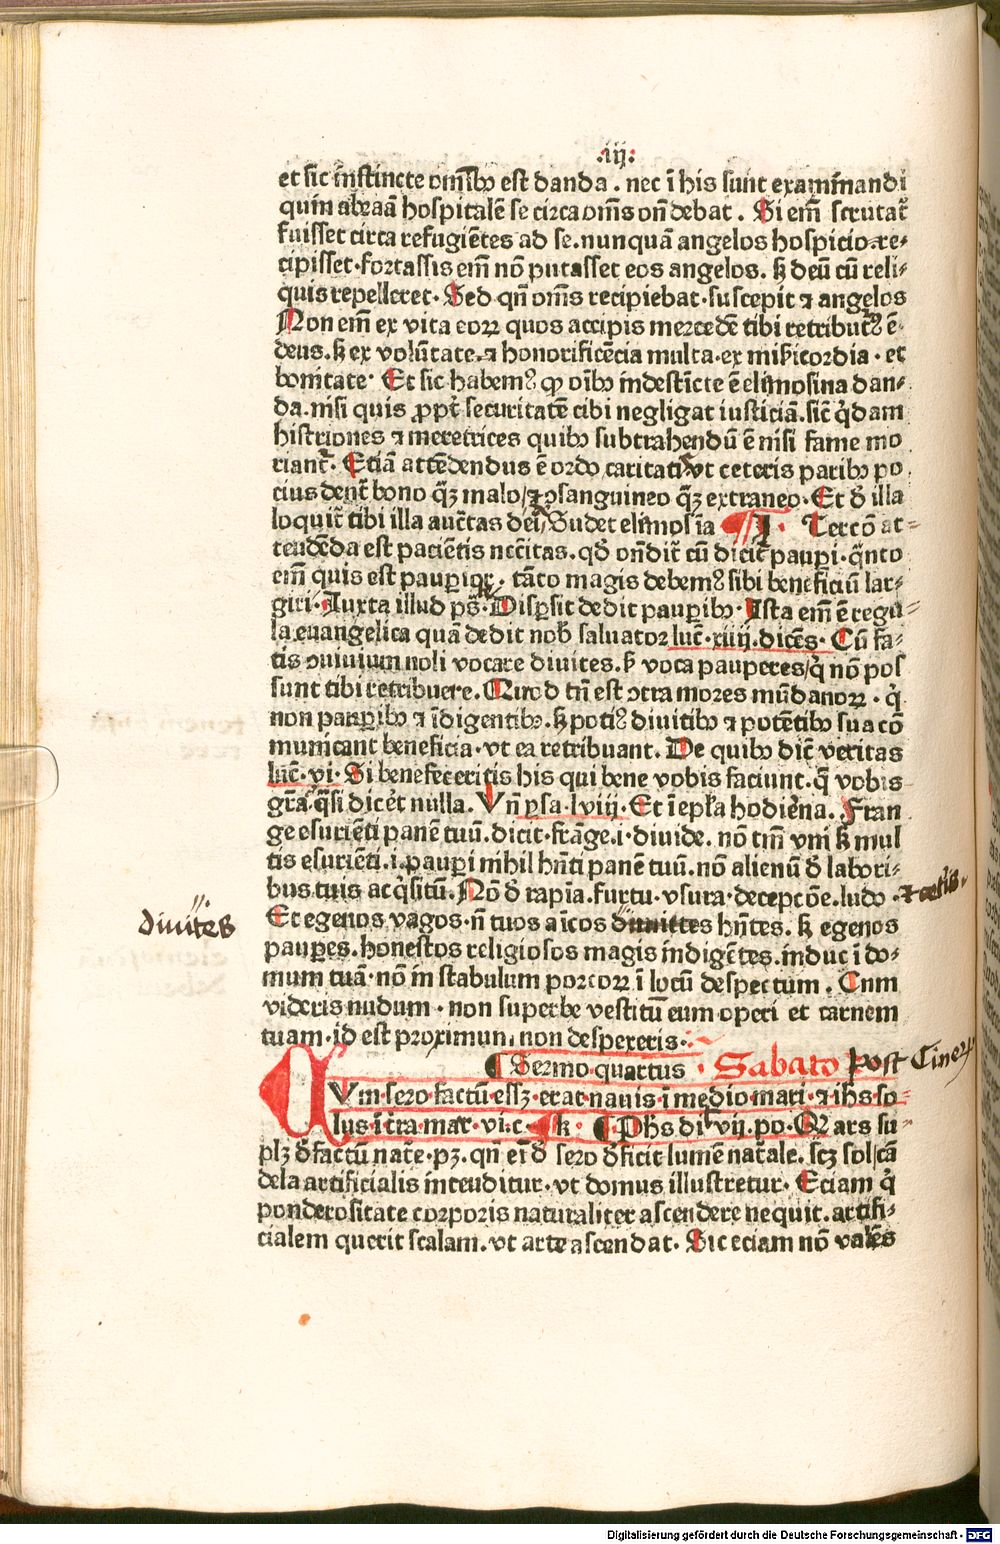 .iij:
et sic instincte om̄ibꝰ est danda . nec ī his sunt examinandi
quin abraā hospitalē se circa om̄s on̄debat . Si em̄ scrutat᷑
fuisset circa refugiētes ad se. nunquā angelos hospicio re⸗
cipisset · fortassis em̄ nō putasset eos angelos. ꝭ deū cū reli⸗
quis repelleret · Sed qn̄ om̄s recipiebat · suscepit ⁊ angelos
Non em̄ ex vita eoꝝ quos accipis mercedē tibi retributꝰ ē·
deus. ꝭ ex volūtate. ⁊ honorificēcia multa · ex mi̅icordia · et
bonitate · Et sic habemꝰ ꝙ oībꝰ indestīcte ē elimosina dan⸗
da. nisi quis ꝓpt̄ securitatē cibi negligat iusticiā. sic̄ q̇dam
histriones ⁊ meretrices quibꝰ subtrahendū ē nisi fame mo
riant᷑ · Eciā attēdendus ē ordo caritatis vt ceteris paribꝰ po
cius dent᷑ bono q̄ꝫ malo / ⁊ ꝯsanguineo q̄ꝫ extraneo · Et ð illa
loquit᷑ tibi illa auc̄tas dei Sudet elimosīa ¶ I · Tercō at⸗
tendēda est paciētis nec̄itas. qð on̄dit᷑ cū dicit᷑ pauꝑi · q̄nto
em̄ quis est pauꝑior · tāto magis debemꝰ sibi beneficiū lar⸗
giri · Iuxta illud pꝰs · Disꝑsit dedit pauꝑibꝰ · Ista em̄ ē regu⸗
la euangelica quā dedit nob̄ saluator luc̄ · xiiij · dicēs · Cū fa⸗
tis ꝯuiuium noli vocare diuites. ꝭ voca pauperes / q̇ nō pos
sunt tibi retribuere. Mirōd tn̄ est ꝯtra mores mūdanoꝝ · q̇
non pauꝑibꝰ ⁊ īdigentibꝰ. ꝭ potiꝰ diuitibꝰ ⁊ potētibꝰ sua cō
municant beneficia · vt ea retribuant. De quibꝰ dic̄ veritas
luc̄ · vi · Si benefeceritis his qui bene vobis faciunt · q̄ vobis
gr̄a · q̄si dicet nulla. Vn̄ ysa · lviij · Et ī ep̄la hodierna. Fran
ge esuriēti panē tuū. dicit · frāge · i · diuide. nō tm̄ vni ꝭ mul
tis esuriēti · i · pauꝑi nihil hn̄ti panē tuū. nō alienū ð labori⸗
bus tuis acq̇sitū. Nō ð rapīa. furtu · vsura · decepcōe. ludo · ⁊ cetis.
diuites
Et egenos vagos · n̄ tuos aīcos diuittes hn̄tes. ꝭ egenos
pauꝑes. honestos religiosos magis indigētes. induc ī do⸗
mum tuā · nō in stabulum porcoꝝ ī locū despectum . Cum
videris nudum · non superbe vestitū eum operi et carnem
tuam · id est proximum, non despexeris ·
¶ Sermo quartus · Sabato post Cineꝝ
Vm sero factū essꝫ · erat nauis ī medio mari · ⁊ ihs so⸗
lus ī t̄ra mar᷑ · vi · c · ¶ k · ¶ Ph̄s dit vij · po · Q ars su⸗
plꝫ ðfactū nat̄e · pꝫ · qn̄ em̄ ð sero ðficit lumē nat᷑ale. scꝫ sol / cā
dela artificialis incenditur · vt domus illustretur · Eciam q̇
ponderositate corporis naturaliter ascendere nequit. artifi⸗
cialem querit scalam. vt arte ascendat · Sic eciam nō valēs
Digitalisierung gefördert durch die Deutsche Forschungsgemeinschaft - DFG